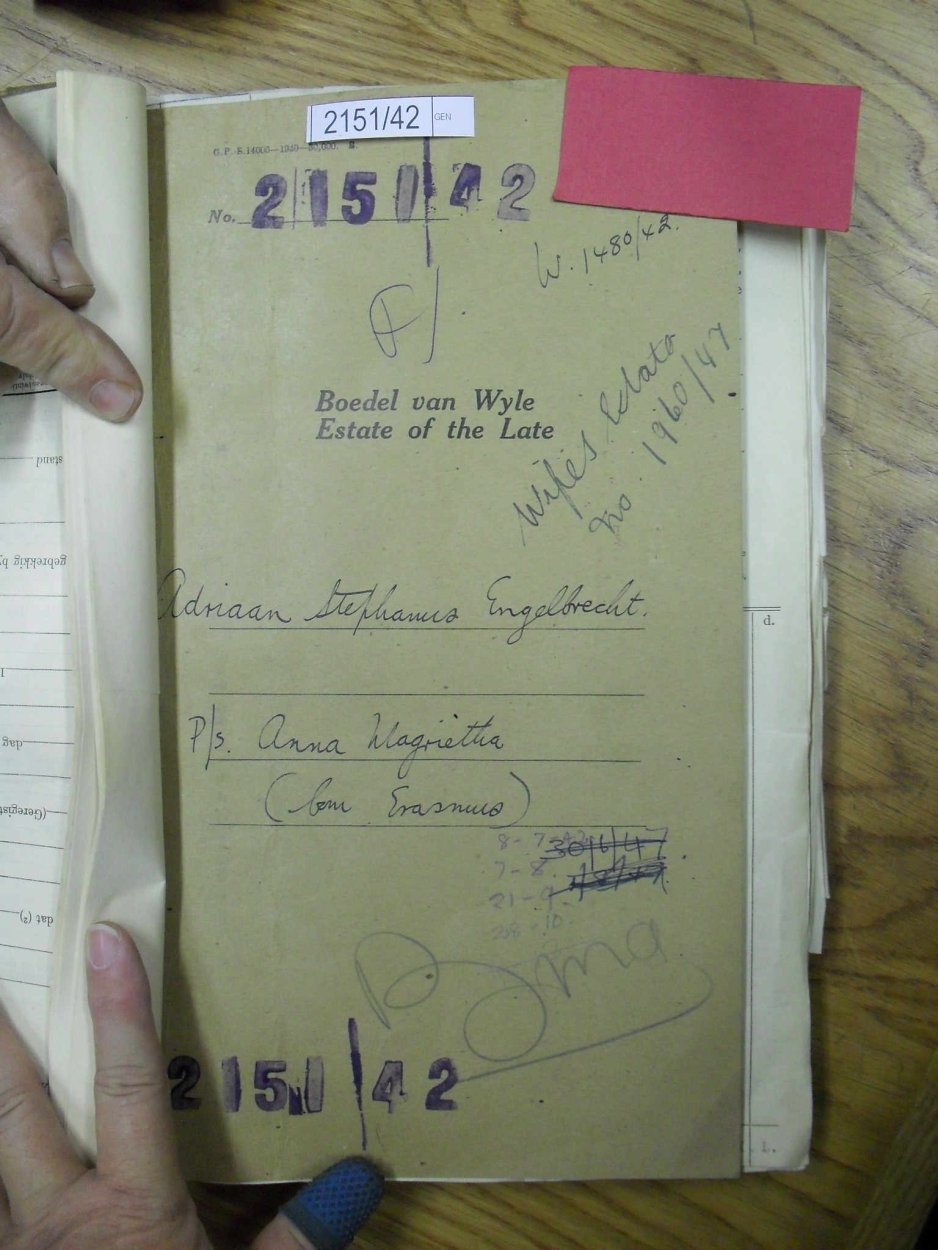 2151/42 GEN
G.P.-S.14000—1940—50,000. S.
No. 2151/42
W. 1480/42.
Boedel van Wyle
Estate of the Late
Wife's Estate
No 1960/47
Adriaan Stephanus Engelbrecht.
P/s. Anna Magrietha
(born Erasmus)
8-7-42
30/6/47
7-8.
21-9.
28-10
2151/42
stand
gebrekkig by
dag
(Geregist
dat (²)
d.
L.